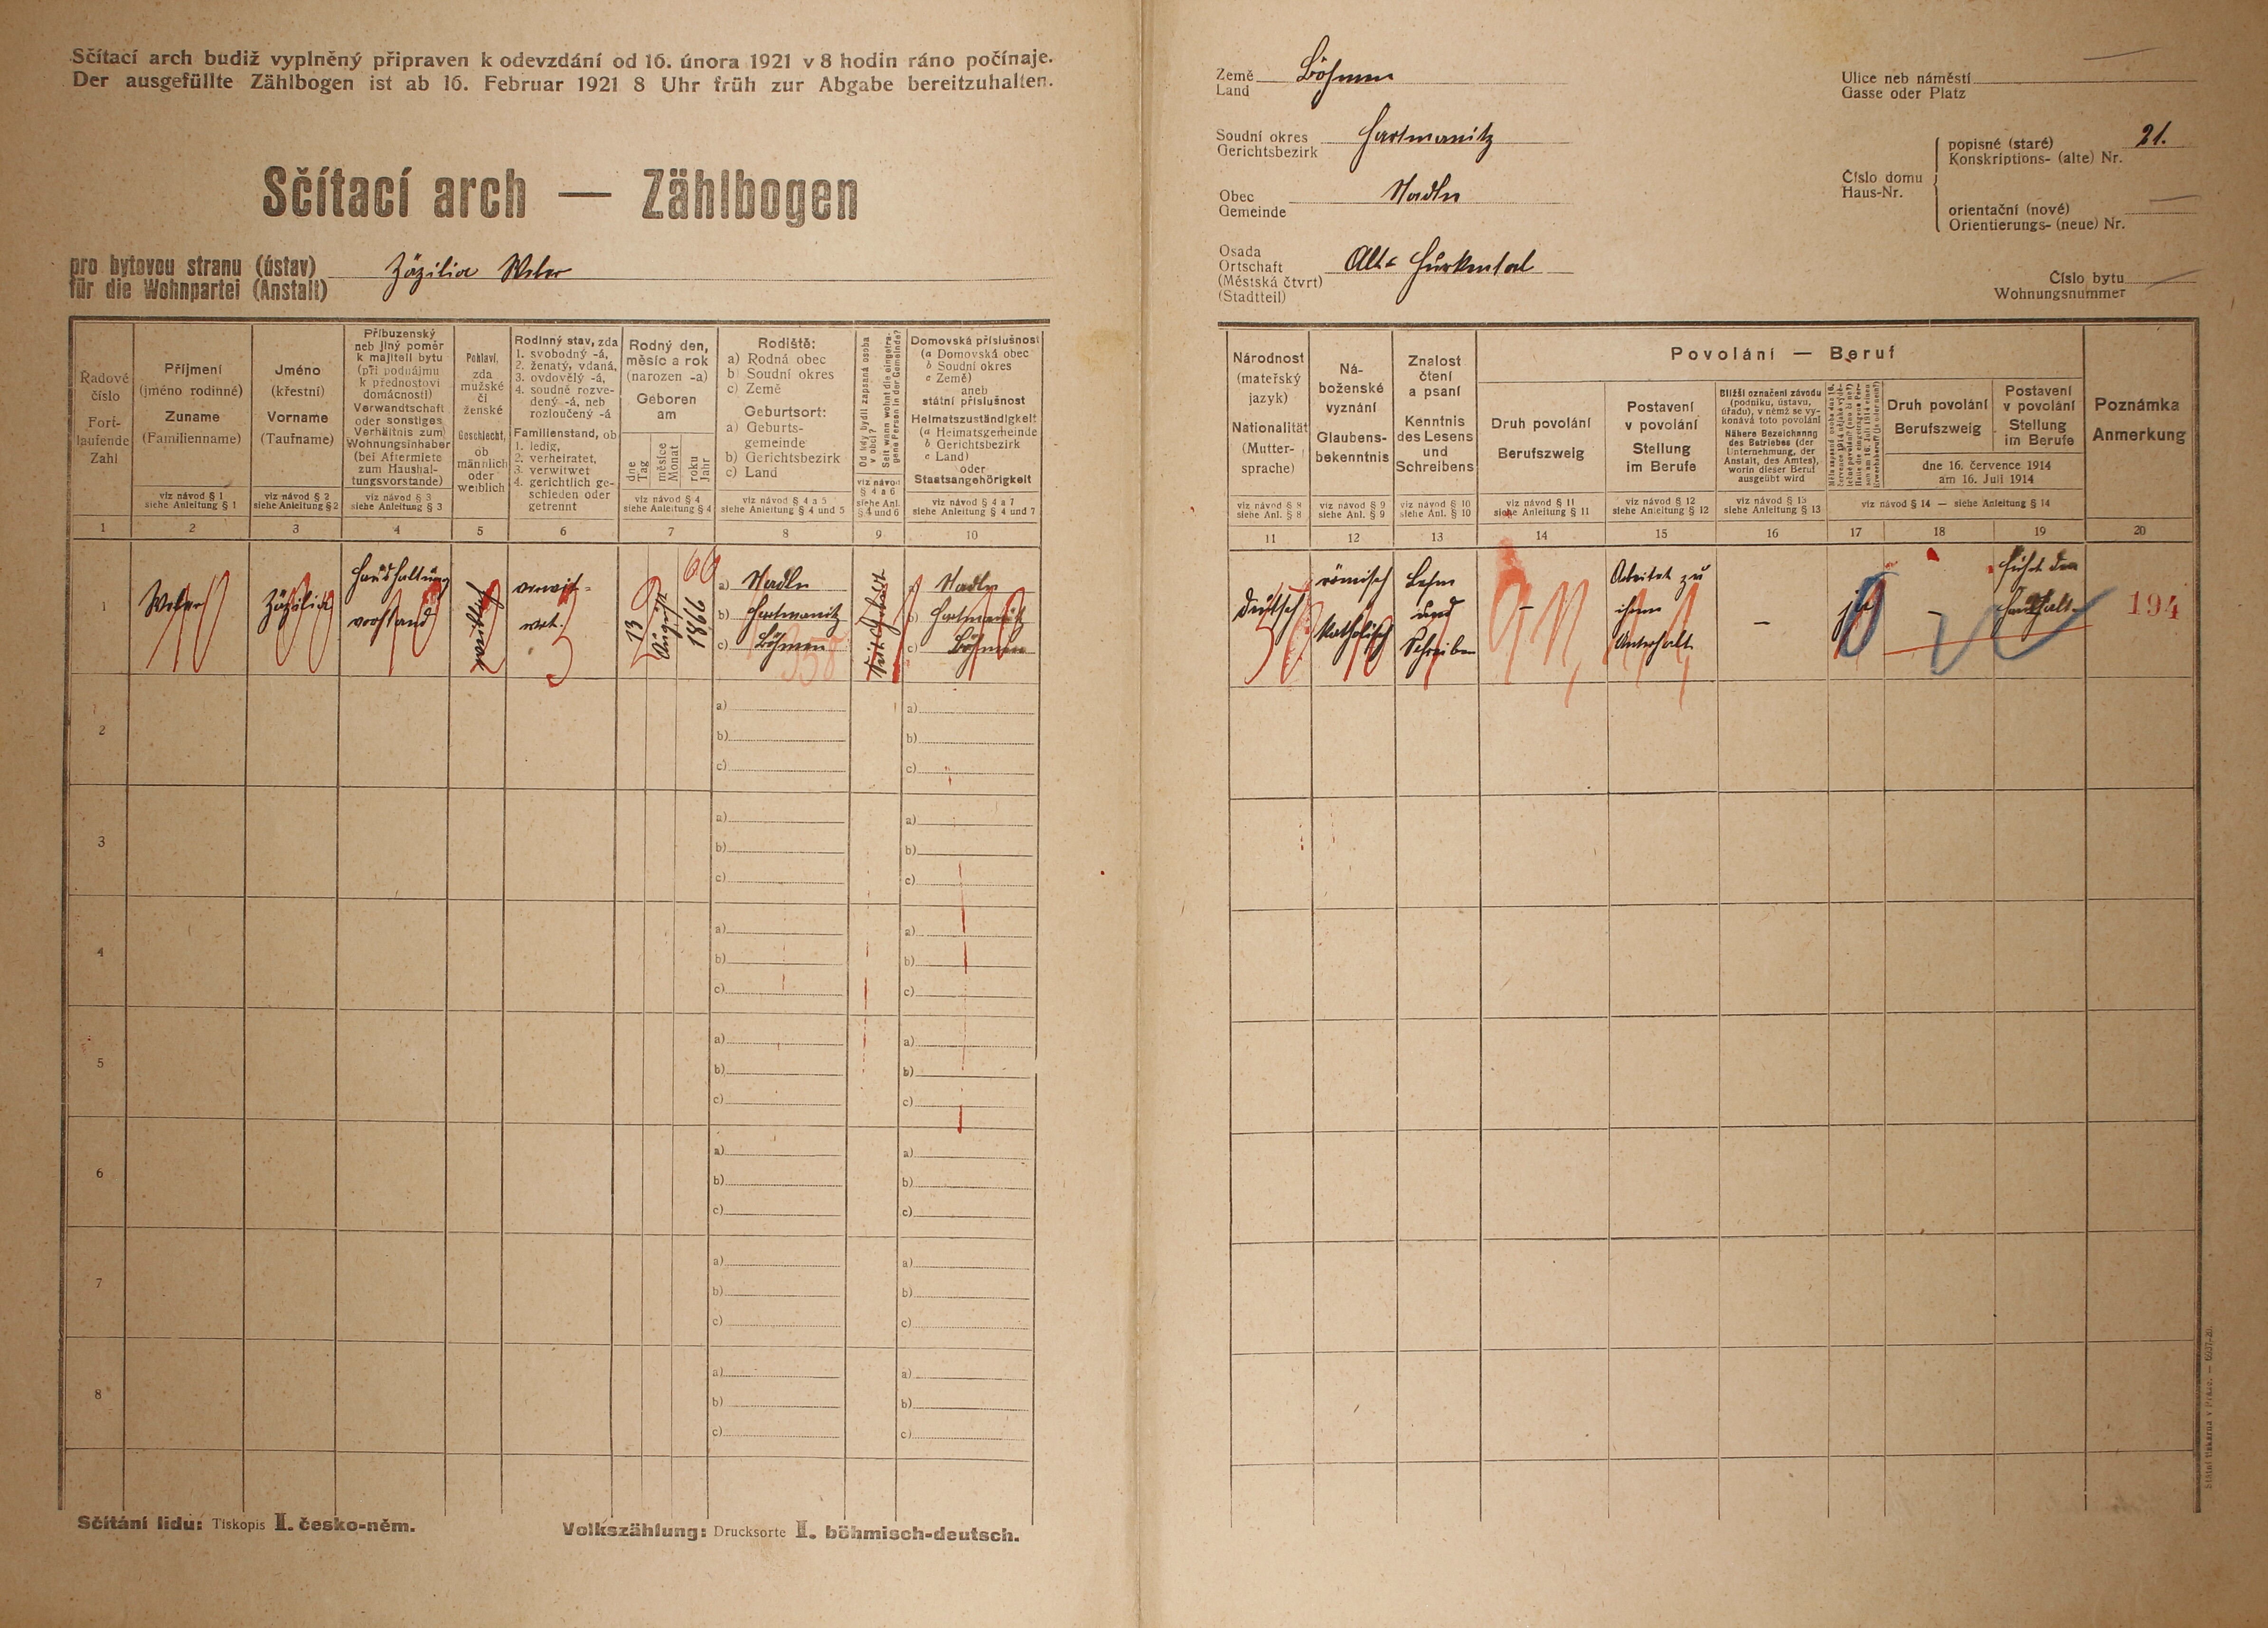 Sčítací arch budiž vyplněný připraven k odevzdání od 16. února 1921 v 8 hodin ráno počínaje.
Der ausgefüllte Zählbogen ist ab 16. Februar 1921 8 Uhr früh zur Abgabe bereitzuhalten.
Sčítací arch — Zählbogen
pro bytovou stranu (ústav)
für die Wohnpartei (Anstalt)
Zäzilia Weber
Řadové
číslo
Fort-
laufende
Zahl
1
Příjmení
(jméno rodinné)
Zuname
(Familienname)
viz návod § 1
siehe Anleitung § 1
2
Jméno
(křestní)
Vorname
(Taufname)
viz návod § 2
siehe Anleitung § 2
3
Příbuzenský
neb jiný poměr
k majiteli bytu
(při podnájmu
k přednostovi
domácnosti)
Verwandtschaft
oder sonstiges
Verhältnis zum
Wohnungsinhaber
(bei Aftermiete
zum Haushal-
tungsvorstande)
viz návod § 3
siehe Anleitung § 3
4
Pohlaví,
zda
mužské
či
ženské
Geschlecht,
ob
männlich
oder
weiblich
5
Rodinný stav, zda
1. svobodný -á,
2. ženatý, vdaná,
3. ovdovělý -á,
4. soudně rozve-
dený -á, neb
rozloučený -á
Familienstand, ob
1. ledig,
2. verheiratet,
3. verwitwet
4. gerichtlich ge-
schieden oder
getrennt
6
Rodný den,
měsíc a rok
(narozen -a)
Geboren
am
dne
Tag
měsíce
Monat
roku
Jahr
viz návod § 4
siehe Anleitung § 4
7
Rodiště:
a) Rodná obec
b) Soudní okres
c) Země
Geburtsort:
a) Geburts-
gemeinde
b) Gerichtsbezirk
c) Land
viz návod § 4 a 5
siehe Anleitung § 4 und 5
8
Od kdy bydlí zapsaná osoba
v obci?
Seit wann wohnt die eingetra-
gene Person in der Gemeinde?
viz návod
§ 4 a 6
siehe Anl.
§ 4 und 6
9
Domovská příslušnost
(a Domovská obec
b Soudní okres
c Země)
aneb
státní příslušnost
Heimatszuständigkeit
(a Heimatsgemeinde
b Gerichtsbezirk
c Land)
oder
Staatsangehörigkeit
viz návod § 4 a 7
siehe Anleitung § 4 und 7
10
1
Weber
Zäzilia
Haushaltung
vorstand
weiblich
verwit-
wet.
13
August
1866
66
a) Stadln
b) Hartmanitz
c) Böhmen
a) Stadln
b) Hartmanitz
c) Böhmen
2
a)
b)
c)
a)
b)
c)
3
a)
b)
c)
a)
b)
c)
4
a)
b)
c)
a)
b)
c)
5
a)
b)
c)
a)
b)
c)
6
a)
b)
c)
a)
b)
c)
7
a)
b)
c)
a)
b)
c)
8
a)
b)
c)
a)
b)
c)
Sčítání lidu: Tiskopis I. česko-něm.
Volkszählung: Drucksorte I. böhmisch-deutsch.
Země
Land
Böhmen
Soudní okres
Gerichtsbezirk
Hartmanitz
Obec
Gemeinde
Stadln
Osada
Ortschaft
(Městská čtvrť)
(Stadtteil)
Alt- Hurkental
Ulice neb náměstí
Gasse oder Platz
Číslo domu
Haus-Nr.
popisné (staré)
Konskriptions- (alte) Nr.
21.
orientační (nové)
Orientierungs- (neue) Nr.
Číslo bytu
Wohnungsnummer
Národnost
(mateřský
jazyk)
Nationalität
(Mutter-
sprache)
viz návod § 8
siehe Anl. § 8
11
Ná-
boženské
vyznání
Glaubens-
bekenntnis
viz návod § 9
siehe Anl. § 9
12
Znalost
čtení
a psaní
Kenntnis
des Lesens
und
Schreibens
viz návod § 10
siehe Anl. § 10
13
Povolání — Beruf
Druh povolání
Berufszweig
viz návod § 11
siehe Anleitung § 11
14
Postavení
v povolání
Stellung
im Berufe
viz návod § 12
siehe Anleitung § 12
15
Bližší označení závodu
(podniku, ústavu,
úřadu), v němž se vy-
konává toto povolání
Nähere Bezeichnung
des Betriebes (der
Unternehmung, der
Anstalt, des Amtes),
worin dieser Beruf
ausgeübt wird
viz návod § 13
siehe Anleitung § 13
16
17
Druh povolání
Berufszweig
Postavení
v povolání
Stellung
im Berufe
dne 16. července 1914
am 16. Juli 1914
viz návod § 14 — siehe Anleitung § 14
18
19
Poznámka
Anmerkung
20
deutsch
römisch
katholisch
Lesen
und
Schreiben
–
Arbeitet zu
ihrem
Unterhalt
–
ja
–
führt den
Haushalt
194